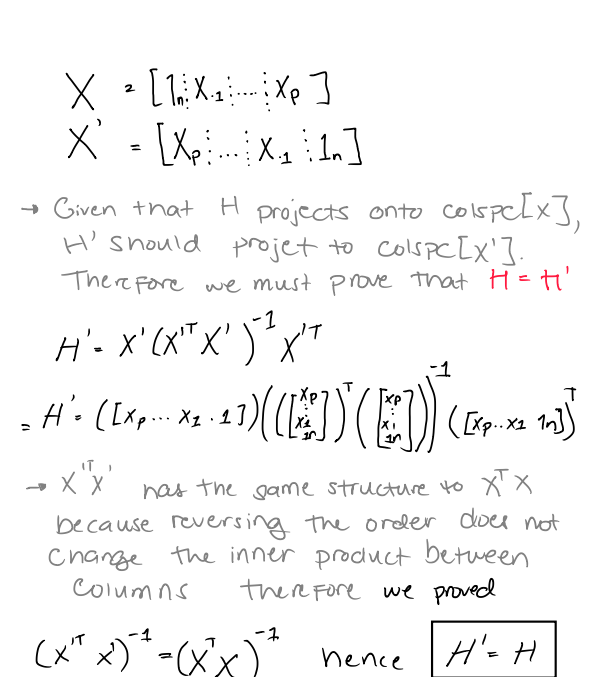 X = [1ₙ ⋮ X.₁ ⋮ .... ⋮ Xₚ ]
X' = [Xₚ ⋮ ... ⋮ X.₁ ⋮ 1ₙ]
→ Given that H projects onto colspc[X],
H' should projet to colspc[X'].
Therefore we must prove that H = H'
H' = X'(X'ᵀX')⁻¹X'ᵀ
= H' = ([xₚ ... x₁ . 1])(([xₚ ⋮ x₁ 1ₙ])ᵀ([xₚ ⋮ x₁ 1ₙ]))⁻¹([xₚ .. x₁ 1ₙ])ᵀ
→ X'ᵀX' has the same structure to XᵀX
because reversing the order does not
change the inner product between
columns therefore we proved
(X'ᵀ X')⁻¹ = (XᵀX)⁻¹ hence H' = H